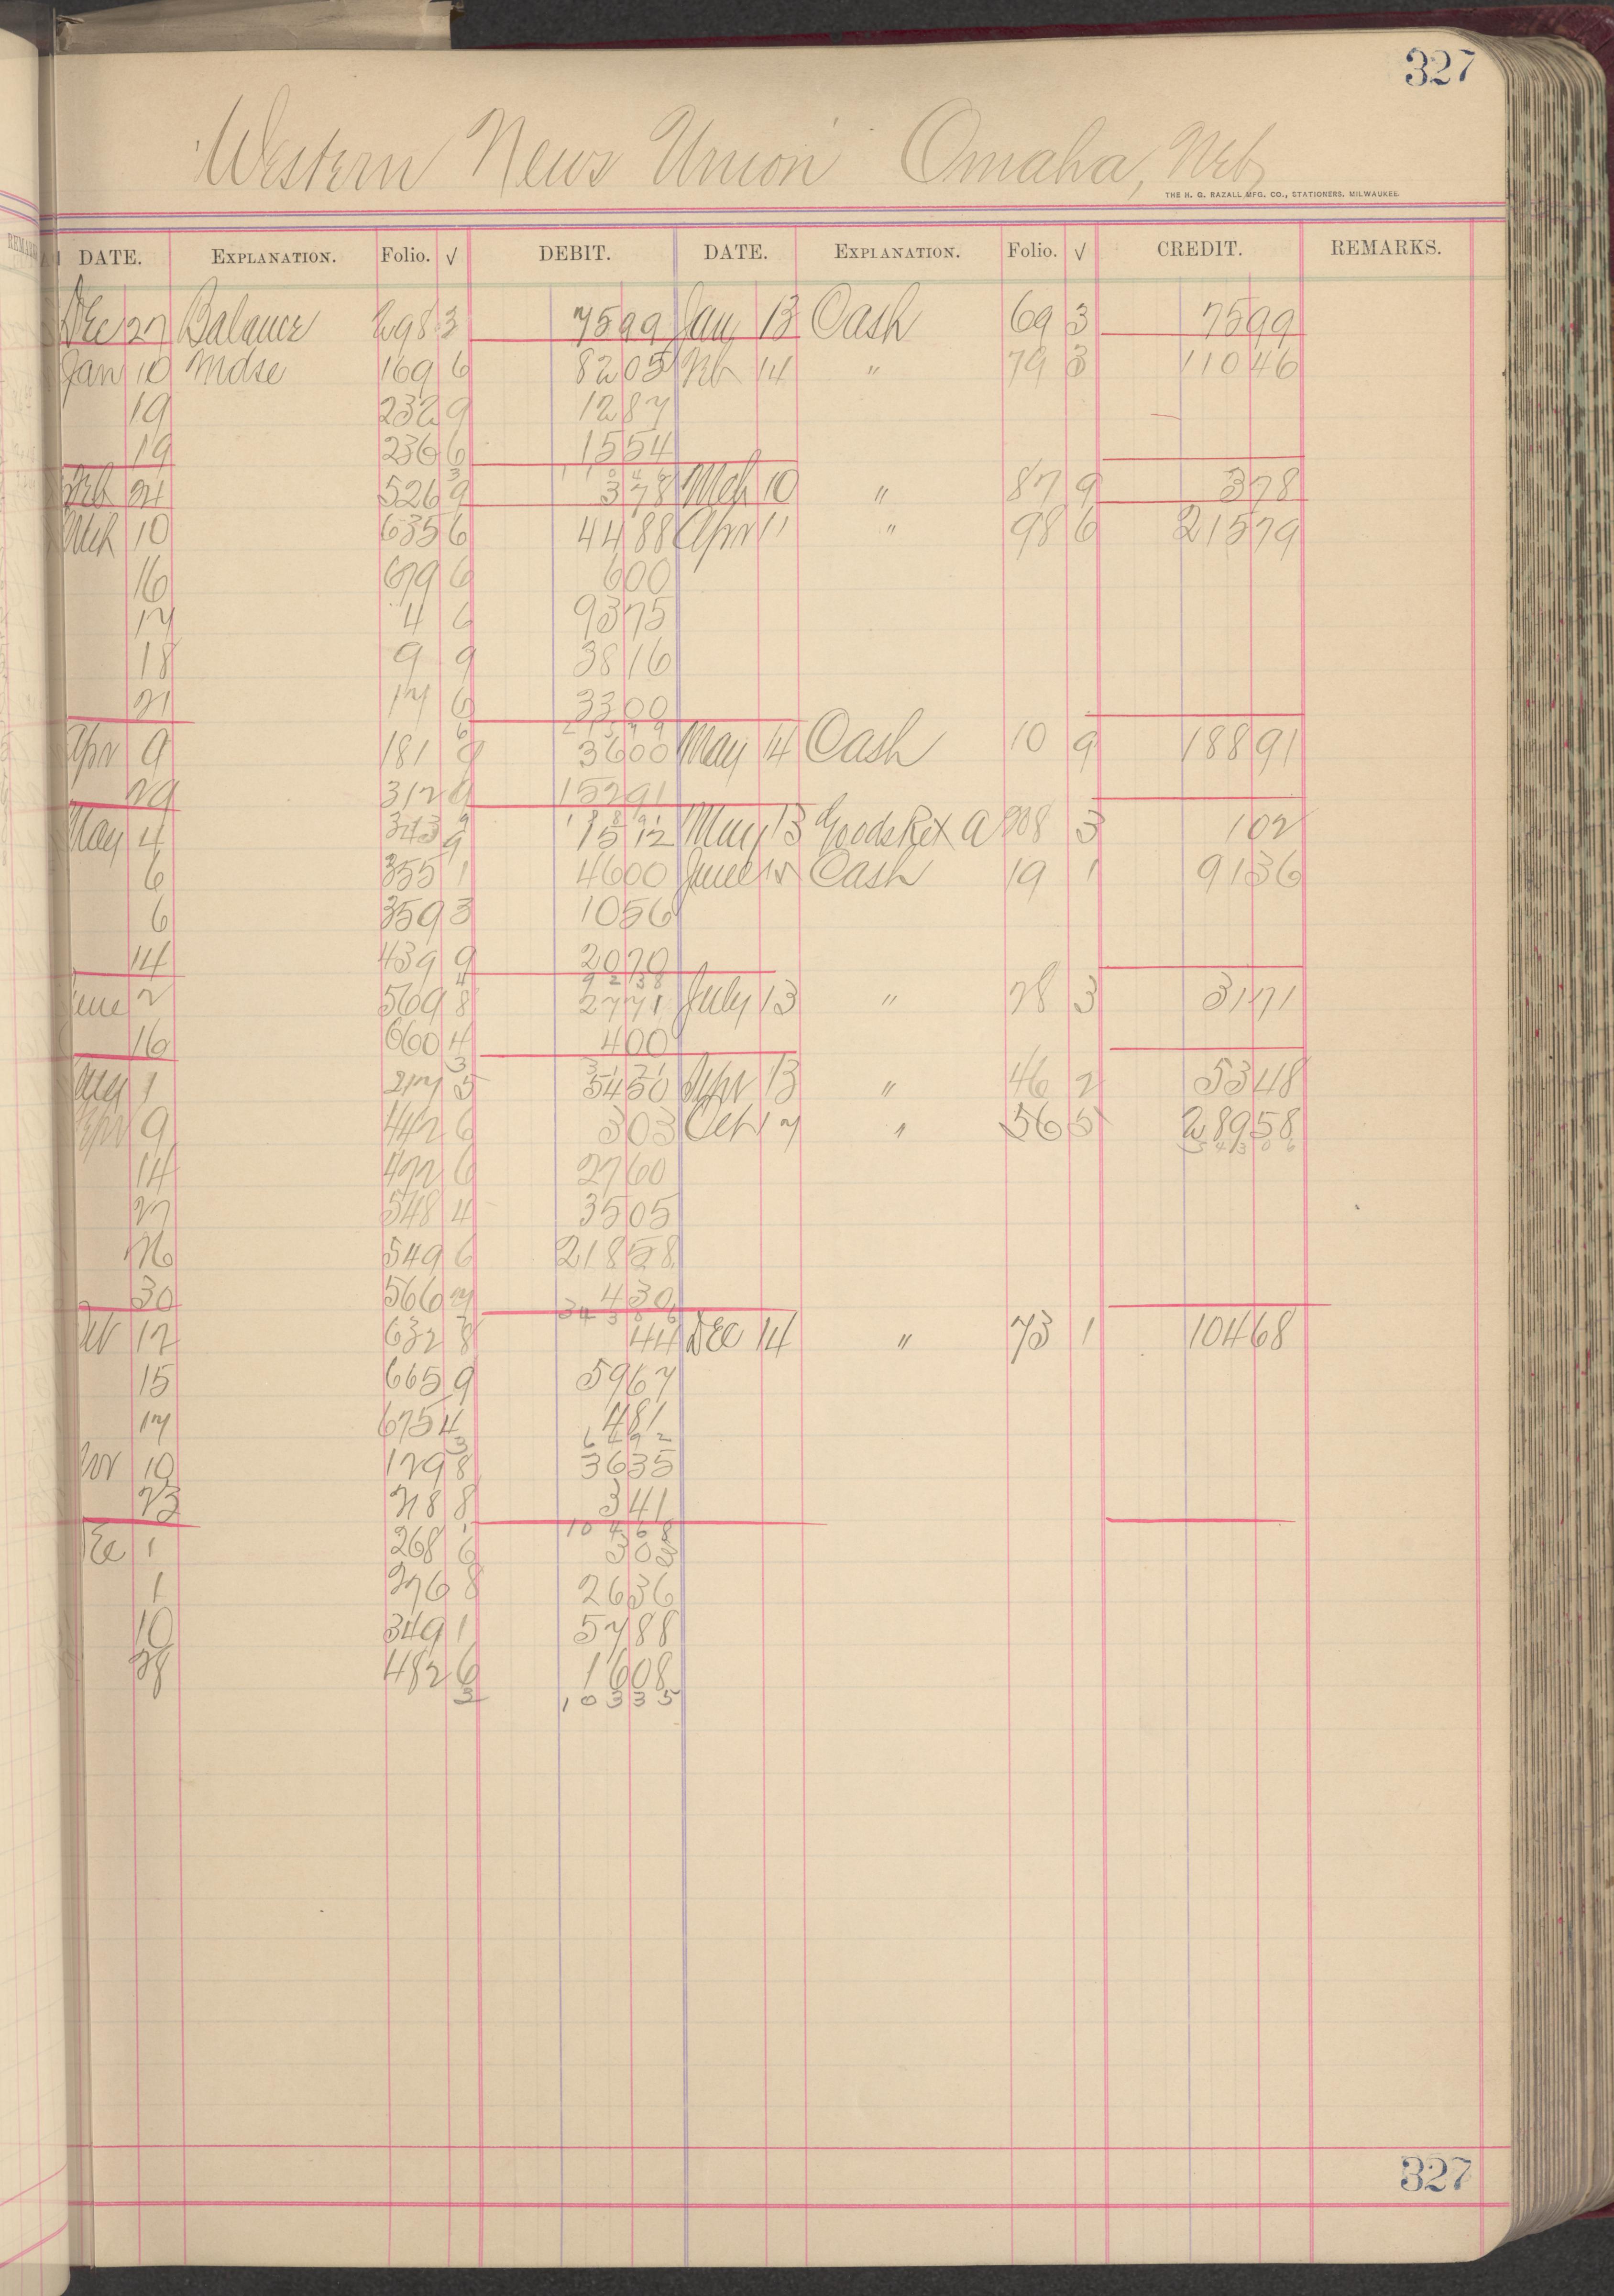 327
Western News Union Omaha, Neb
THE H. G. RAZALL MFG. CO., STATIONERS, MILWAUKEE.
DATE. EXPLANATION. Folio. √ DEBIT. DATE. EXPLANATION. Folio. √ CREDIT. REMARKS.
Dec 27 Balance 298 3 7599 Jan 13 Cash 69 3 7599
Jan 10 Mdse 169 6 8205 Feb 14 " 79 3 11046
19 232 9 1287
19 236 6 1554
Feb 21 526 9 378 Mch 10 " 87 9 378
Mch 10 635 6 4488 Apr 11 " 98 6 21579
16 679 6 600
17 4 6 9375
18 9 9 3816
21 17 6 3300
Apr 9 181 9 3600 May 14 Cash 10 9 18891
29 312 9 15291
May 4 343 9 1512 May 13 Goods Ret A 208 3 102
6 355 1 4600 June 15 Cash 19 1 9136
6 359 3 1056
14 439 9 2070
9238
June 2 569 8 2771 July 13 " 28 3 3171
16 660 4 400
Aug 1 217 5 5430 Sept 13 " 46 2 5348
9 442 6 303 Oct 7 " 56 5 28958
14 472 6 2760
548 4 3505
26 549 6 21858
30 566 7 430
34306
Oct 12 632 8 44 Dec 14 " 73 1 10468
15 665 9 5967
17 675 4 481
6492
Nov 10 129 8 3635
23 218 8 341
10468
Dec 1 268 6 303
1 276 8 2636
10 349 1 5788
28 482 6 1608
3 10335
327